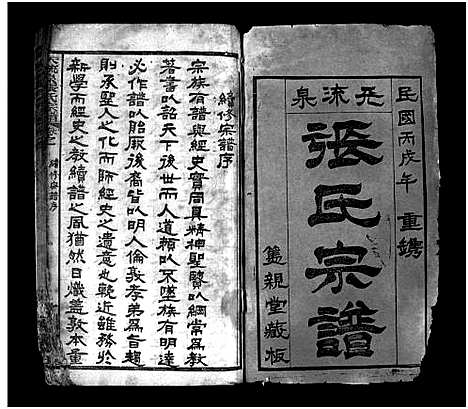 民國丙戌年 重鐫
泉流
張氏宗譜
親堂藏板
續修宗譜序
宗族有譜與經史實同具精神聖賢以綱常為教
著書以詔天下後世而人道賴以不墜族有明達
必作譜以貽厥後裔皆以明人倫敦孝弟為旨趨
則承聖人之化而師經史之遺意也輓近雖務於
新學而經史之教續譜之風猶然日熾蓋敦本重